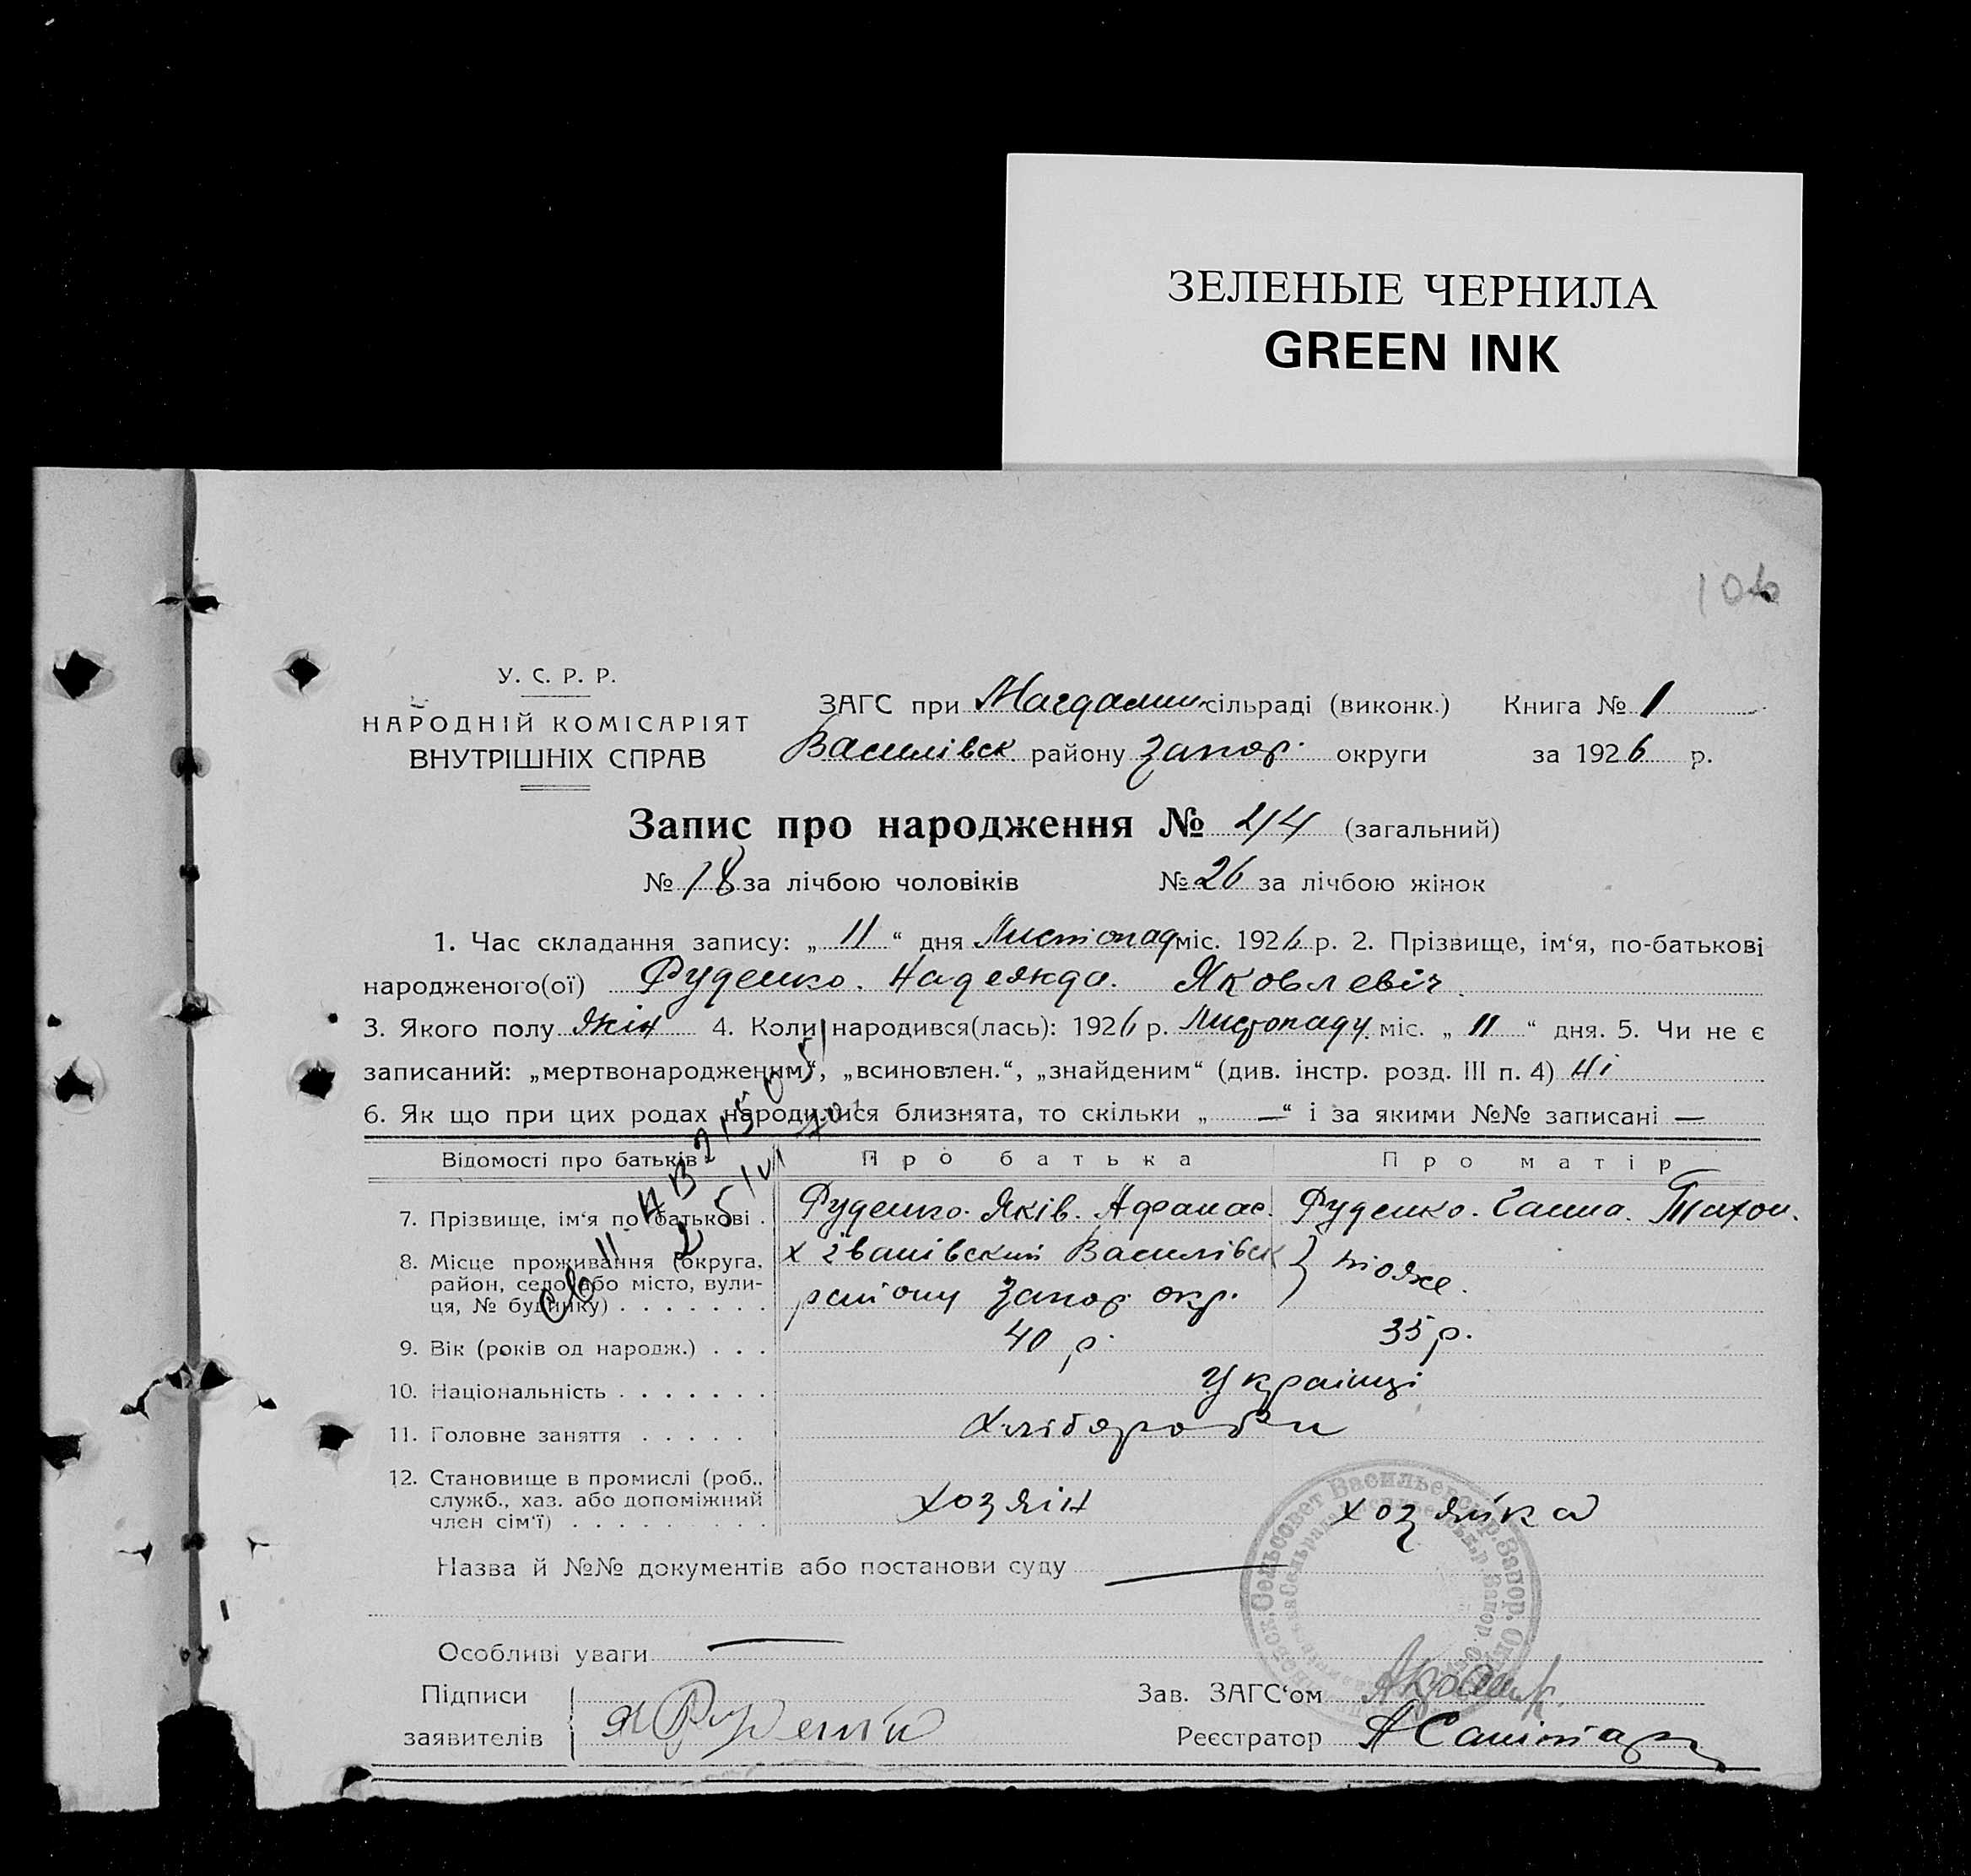 ЗЕЛЕНЫЕ ЧЕРНИЛА
GREEN INK
106
У. С. Р. Р.
НАРОДНІЙ КОМІСАРІЯТ
ВНУТРІШНІХ СПРАВ
ЗАГС при Магдалин сільраді (виконк.) Книга № 1
Василівск району Запор. округи за 1926 р.
Запис про народження № 44 (загальний)
№ 18 за лічбою чоловіків № 26 за лічбою жінок
1. Час складання запису: „ 11 “ дня Листіопад міс. 1926 р. 2. Прізвище, ім‘я, по-батькові
народженого(ої) Руденко. Надежда. Яковлевіч
3. Якого полу жін 4. Коли народився(лась): 1926 р. Листопаду міс. „ 11 “ дня. 5. Чи не є
записаний: „мертвонародженим“, „всиновлен.“, „знайденим“ (див. інстр. розд. III п. 4) ні
6. Як що при цих родах народилися близнята, то скільки „ — “ і за якими №№ записані —
Відомості про батьків Про батька Про матір
7. Прізвище, ім‘я по батькові . Руденко. Яків. Афанас. Руденко. Ганна. Тихон.
8. Місце проживання (округа, х Іванівский Василівск } тіоже.
район, село або місто, вули-
ця, № будинку) . . . . . . . району Запор окр.
9. Вік (років од народж.) . . . 40 р. 35 р.
10. Національність . . . . . . . Українці
11. Головне заняття . . . . . Хлібороби
12. Становище в промислі (роб.,
служб., хаз. або допоміжний хозяін хозяйка
член сім‘ї) . . . . . . . . .
Назва й №№ документів або постанови суду —
Особливі уваги —
Підписи
заявителів Я Руденко
Зав. ЗАГС‘ом
Реєстратор
Сельсовет Васильевск. р. Запор. Ок